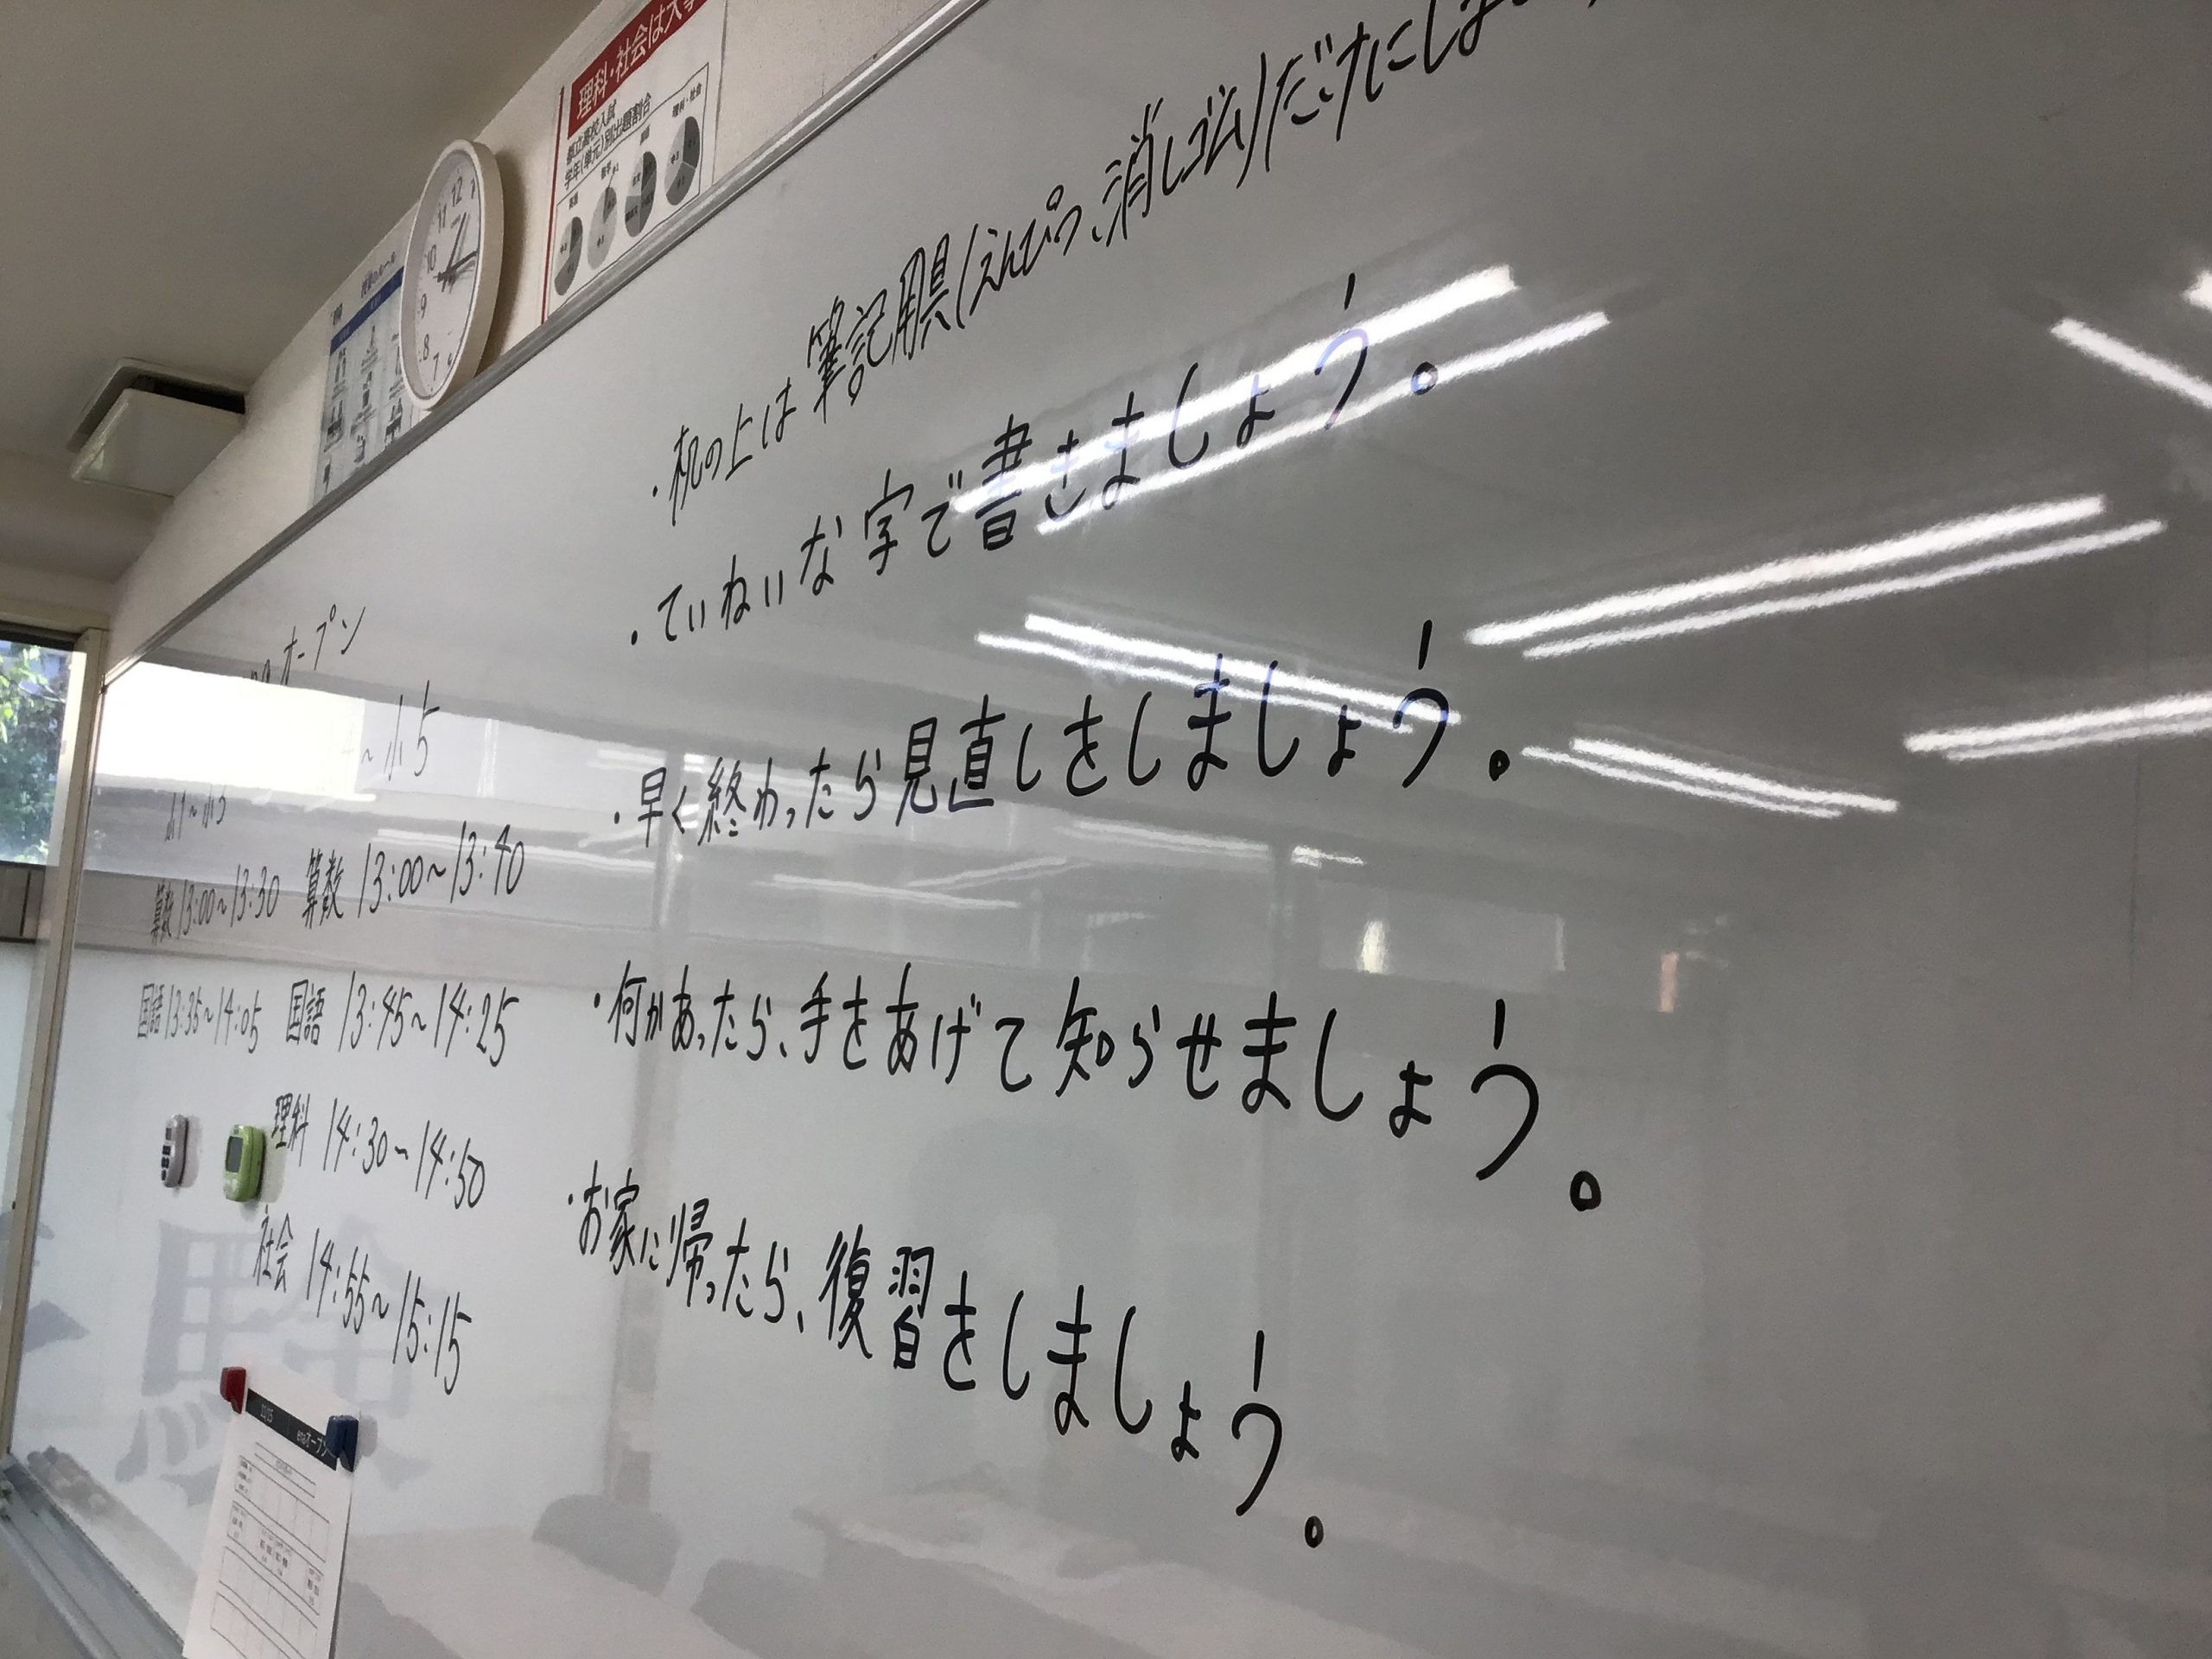 理科・社会は大
都立高校入試
学年(単元)別出題割合
理科・社会
12
11
10
9
8
7
・机の上は筆記用具(えんぴつ、消しゴム)だけにしま
・ていねいな字で書きましょう。
・早く終わったら見直しをしましょう。
・何かあったら、手をあげて知らせましょう。
・お家に帰ったら、復習をしましょう。
オープン
～小5
算数 13:00～13:30
国語 13:35～14:05
算数 13:00～13:40
国語 13:45～14:25
理科 14:30～14:50
社会 14:55～15:15
enaオープン